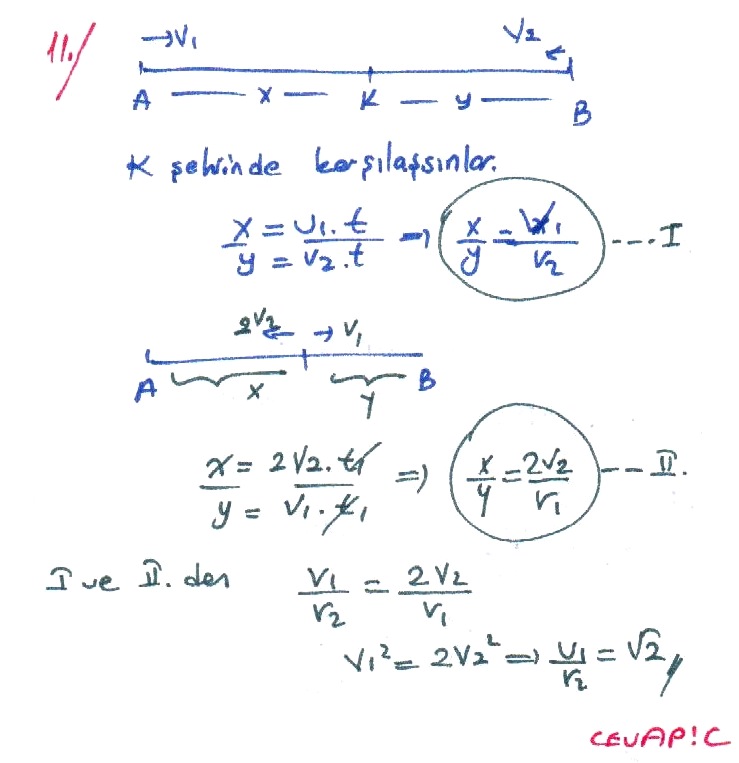 11./
→V₁ V₂ ←
A — x — K — y — B
K şehrinde karşılaşsınlar.
x = v₁.t / y = v₂.t → x/y = v₁/v₂ ---I
2V₂ ← → V₁
A x y B
x = 2V₂.t₁ / y = V₁.t₁ ⇒ x/y = 2V₂/V₁ ---II.
I ve II. den V₁/V₂ = 2V₂/V₁
V₁² = 2V₂² ⇒ V₁/V₂ = √2
CEVAP!C